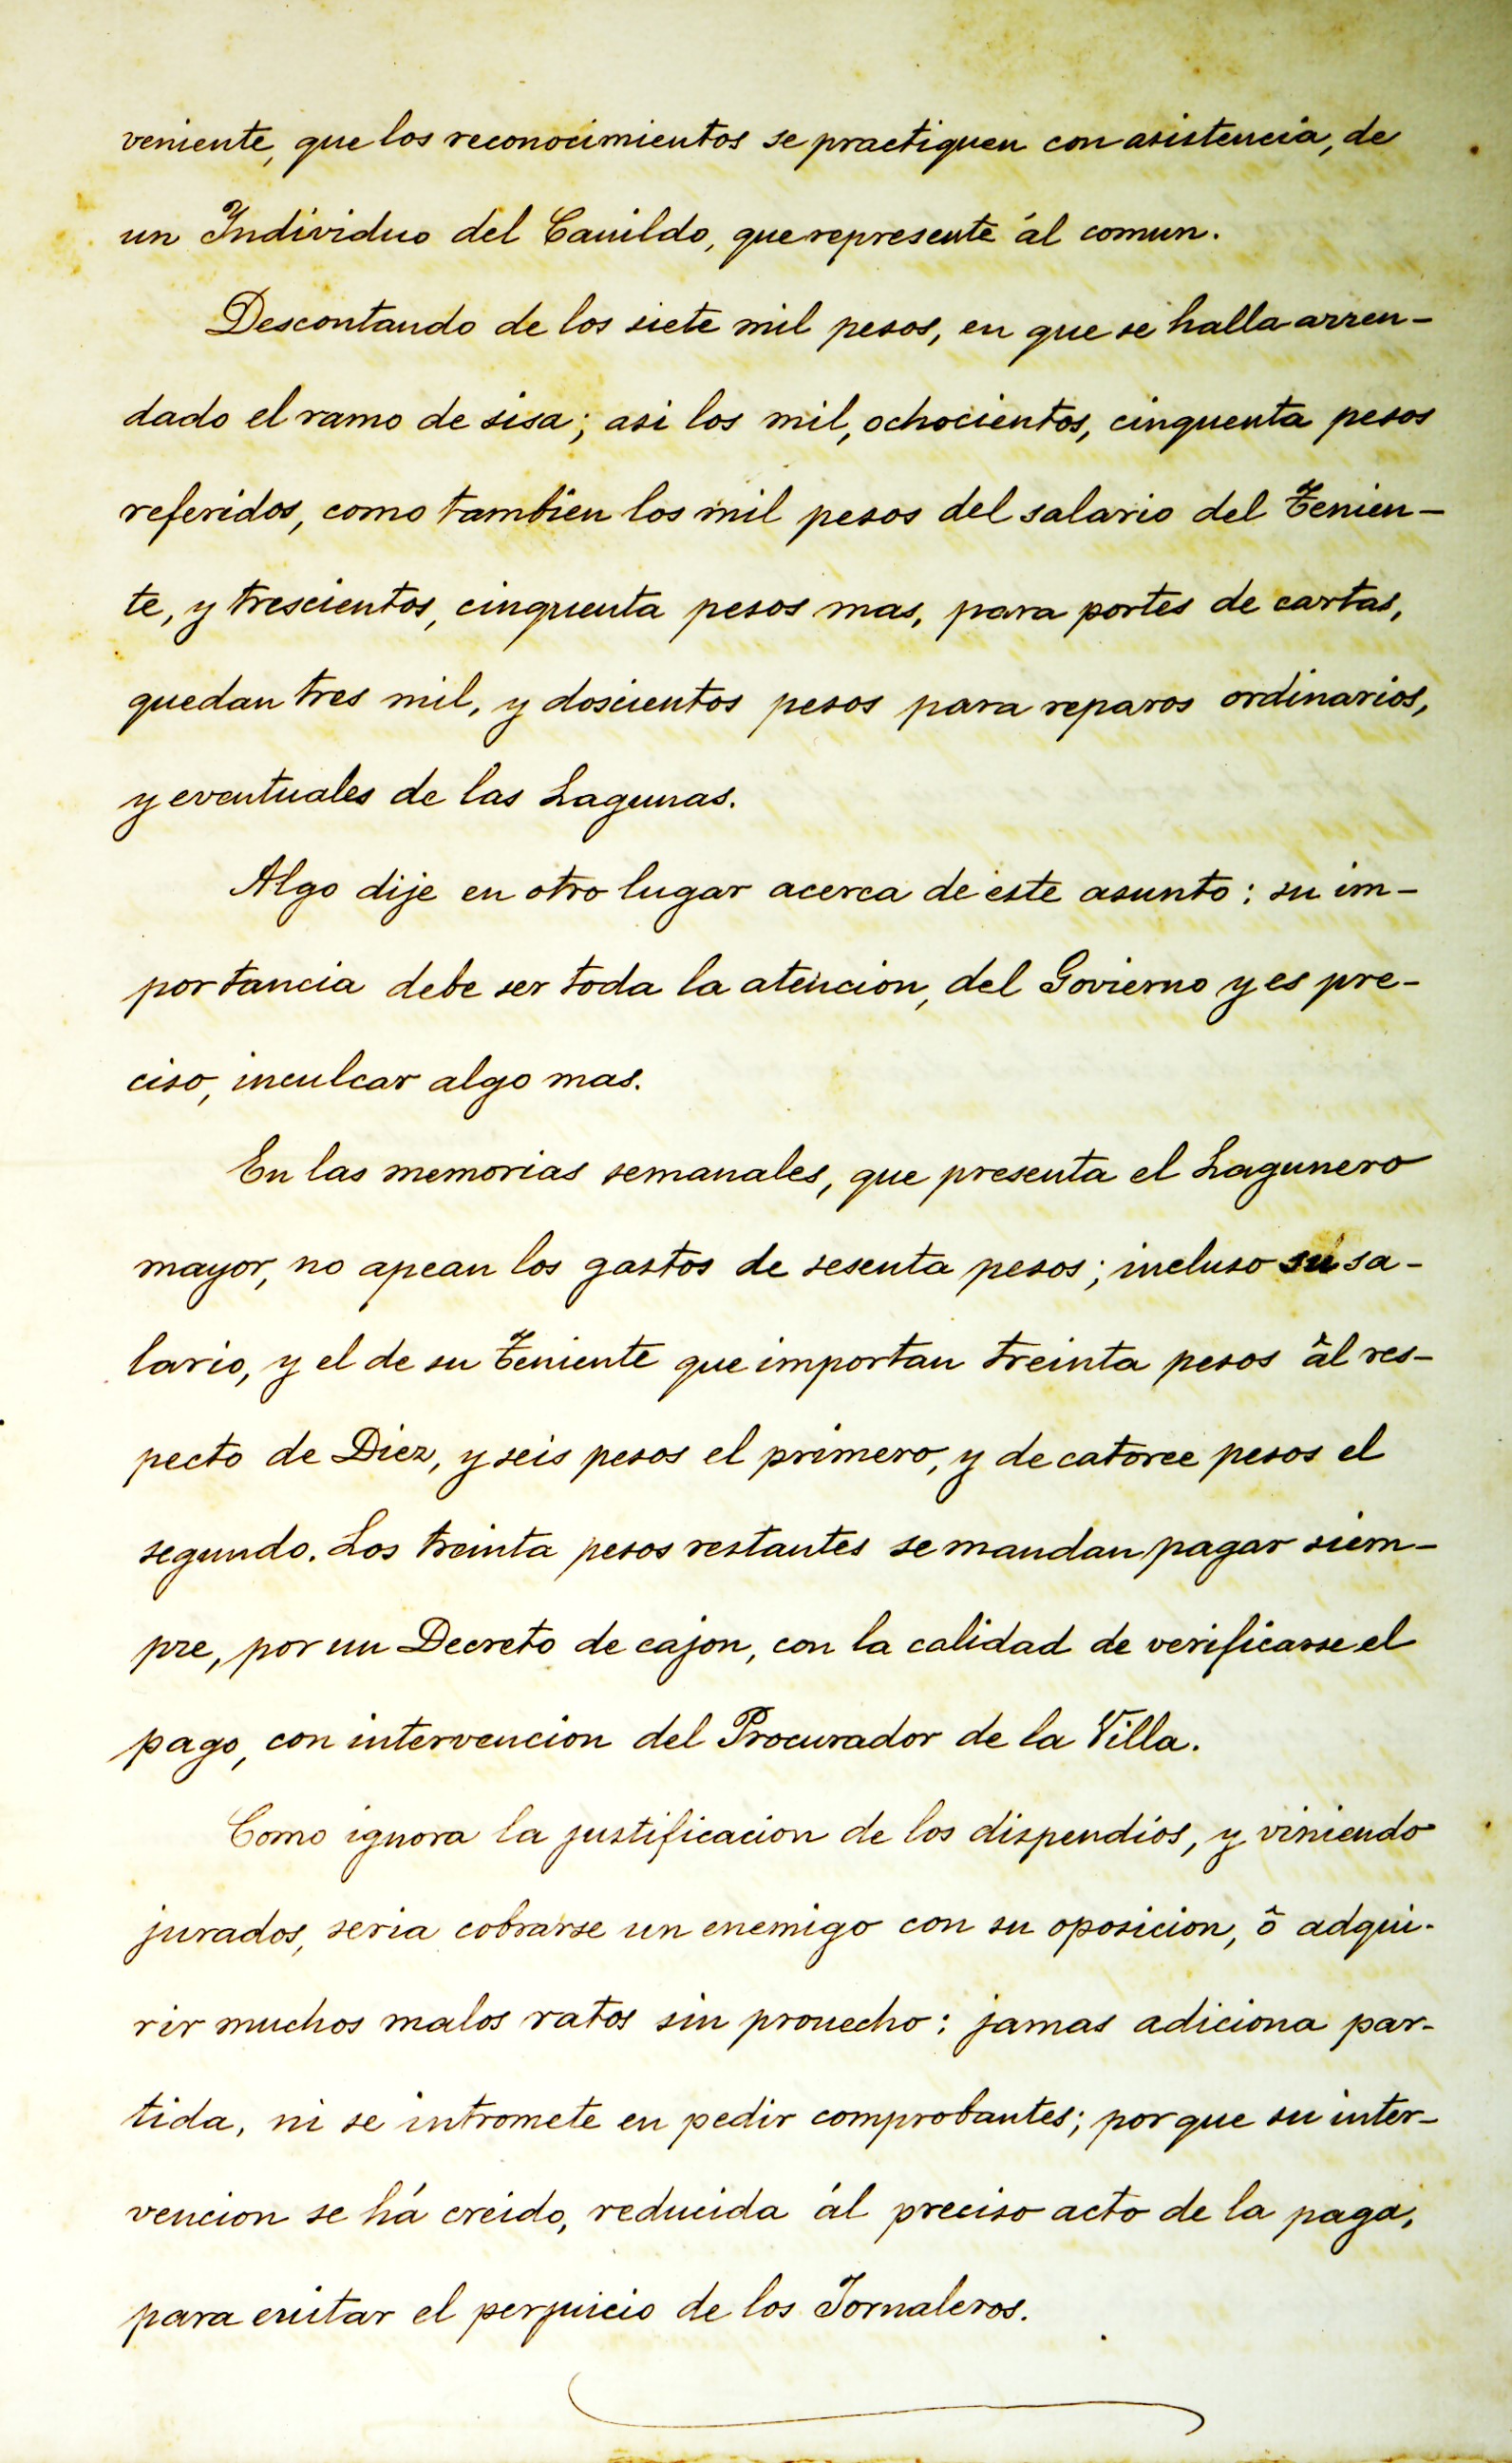 veniente, que los reconocimientos se practiquen con asistencia, de
un Individuo del Cauildo, que represente ál comun.
Descontando de los siete mil pesos, en que se halla arren-
dado el ramo de sisa; asi los mil, ochocientos, cinquenta pesos
referidos, como tambien los mil pesos del salario del Tenien-
te, y trescientos, cinquenta pesos mas, para portes de cartas,
quedan tres mil, y doscientos pesos para reparos ordinarios,
y eventuales de las Lagunas.
Algo dije en otro lugar acerca de este asunto: su im-
portancia debe ser toda la atencion, del Govierno y es pre-
ciso, inculcar algo mas.
En las memorias semanales, que presenta el Lagunero
mayor, no apean los gastos de sesenta pesos; incluso su sa-
lario, y el de su Teniente que importan treinta pesos âl res-
pecto de Diez, y seis pesos el primero, y de catorce pesos el
segundo. Los treinta pesos restantes se mandan pagar siem-
pre, por un Decreto de cajon, con la calidad de verificarse el
pago, con intervencion del Procurador de la Villa.
Como ignora la justificacion de los dispendios, y viniendo
jurados, seria cobrarse un enemigo con su oposicion, ô adqui-
rir muchos malos ratos sin prouecho: jamas adiciona par-
tida, ni se intromete en pedir comprobantes; por que su inter-
vencion se há creido, reducida ál preciso acto de la paga,
para euitar el perjuicio de los Jornaleros.